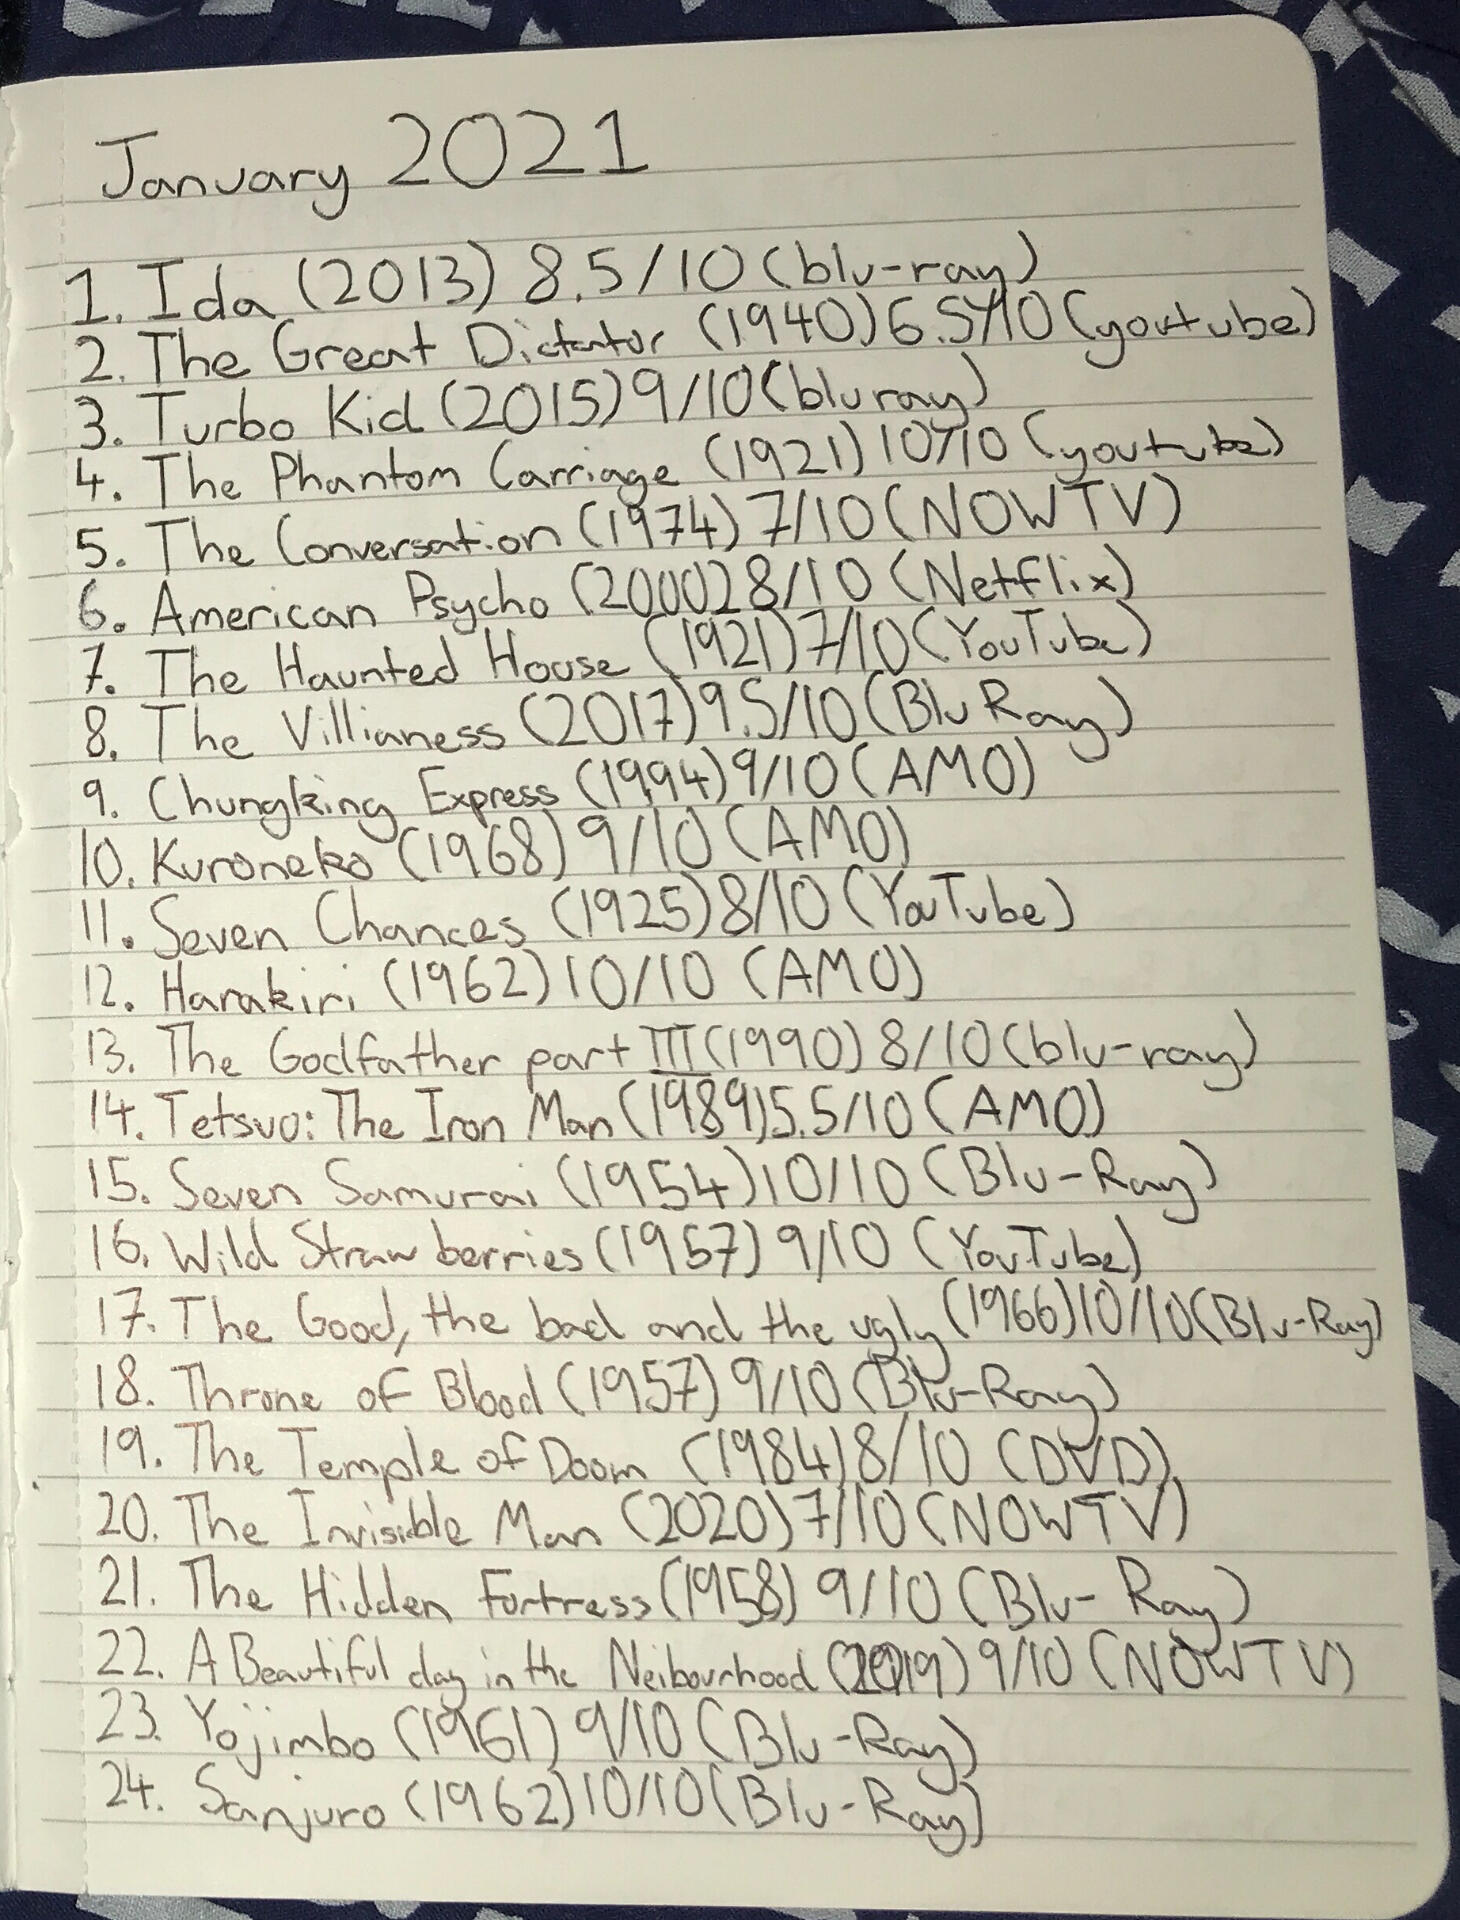 January 2021
1. Ida (2013) 8.5/10 (blu-ray)
2. The Great Dictator (1940) 6.5/10 (youtube)
3. Turbo Kid (2015) 9/10 (bluray)
4. The Phantom Carriage (1921) 10/10 (youtube)
5. The Conversation (1974) 7/10 (NOWTV)
6. American Psycho (2000) 8/10 (Netflix)
7. The Haunted House (1921) 7/10 (YouTube)
8. The Villianess (2017) 9.5/10 (Blu Ray)
9. Chungking Express (1994) 9/10 (AMO)
10. Kuroneko (1968) 9/10 (AMO)
11. Seven Chances (1925) 8/10 (YouTube)
12. Harakiri (1962) 10/10 (AMO)
13. The Godfather part III (1990) 8/10 (blu-ray)
14. Tetsuo: The Iron Man (1989) 5.5/10 (AMO)
15. Seven Samurai (1954) 10/10 (Blu-Ray)
16. Wild Strawberries (1957) 9/10 (YouTube)
17. The Good, the bad and the ugly (1966) 10/10 (Blu-Ray)
18. Throne of Blood (1957) 9/10 (Blu-Ray)
19. The Temple of Doom (1984) 8/10 (DVD)
20. The Invisible Man (2020) 7/10 (NOWTV)
21. The Hidden Fortress (1958) 9/10 (Blu-Ray)
22. A Beautiful day in the Neibourhood (2019) 9/10 (NOWTV)
23. Yojimbo (1961) 9/10 (Blu-Ray)
24. Sanjuro (1962) 10/10 (Blu-Ray)